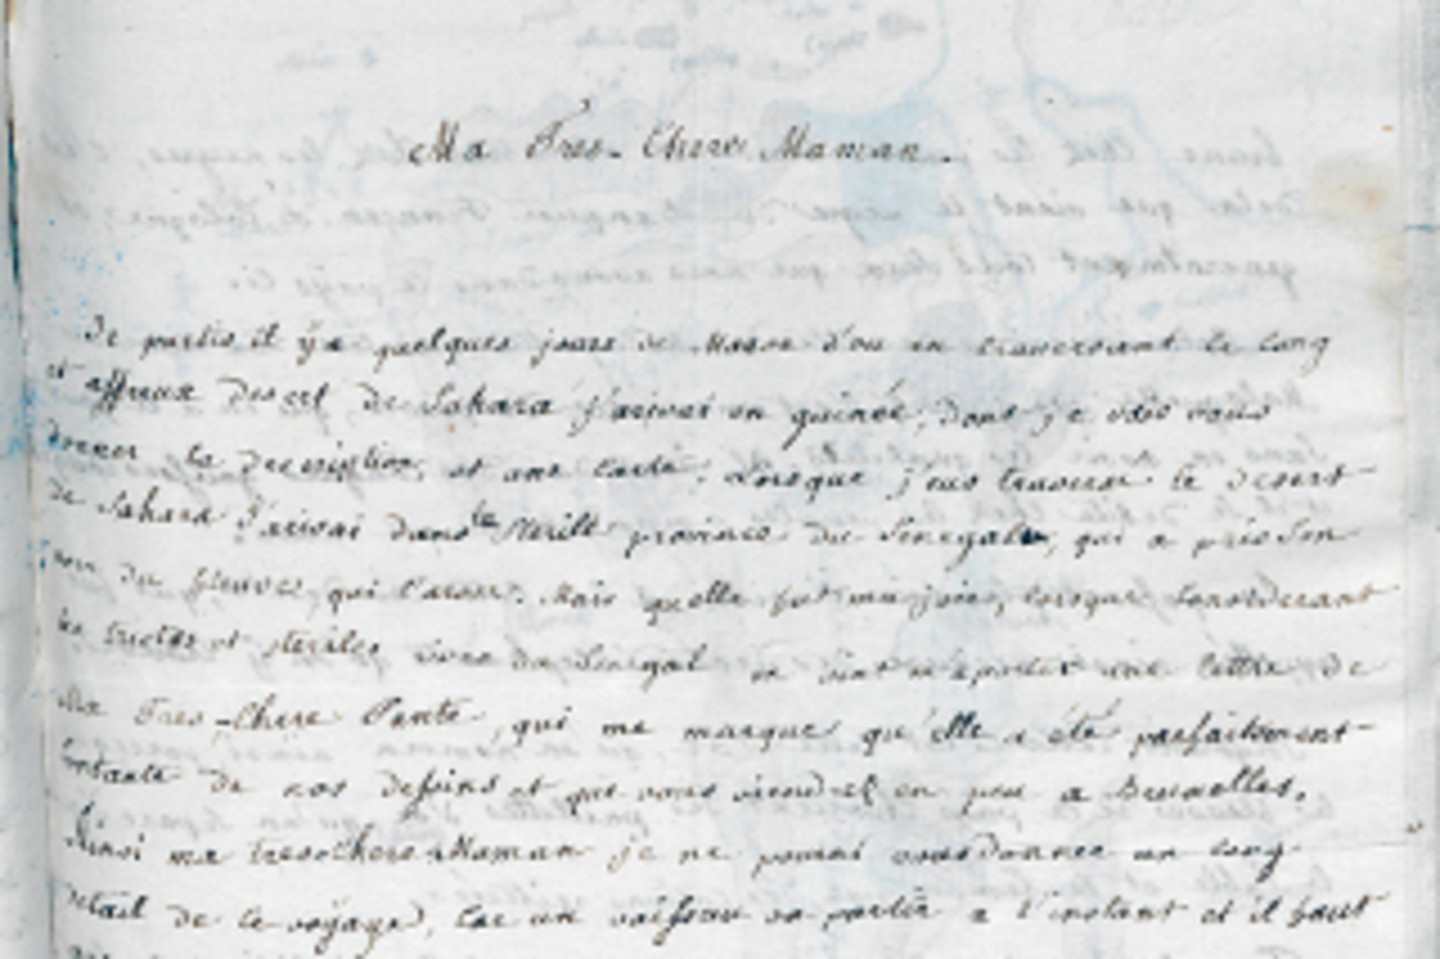 Ma Tres-Chere Maman.
Je partis il ÿ a quelques jours de Maroc d'ou en traversant le long
et affreux desert de Sahara j'arivai en guinée, dont je vais vous
donner la description, et une carte. Lorsque j'eus traversé le desert
de Sahara j'arivai dans le province du Senegal, qui a pris son
nom du fleuve, qui l'arose. Mais quelle fut ma joie, lorsque considerant
les tristes et steriles rives du Senegal on vint m'aporter une lettre de
Ma Tres-Chere Tante, qui me marque qu'elle a été parfaitement
contante de nos dessins et que vous viendrez en peu a Bruxelles.
Ainsi ma tres chere Maman je ne pourai vous donner un long
detail de ce voÿage, car un vaisseau va partir a l'instant et il faut